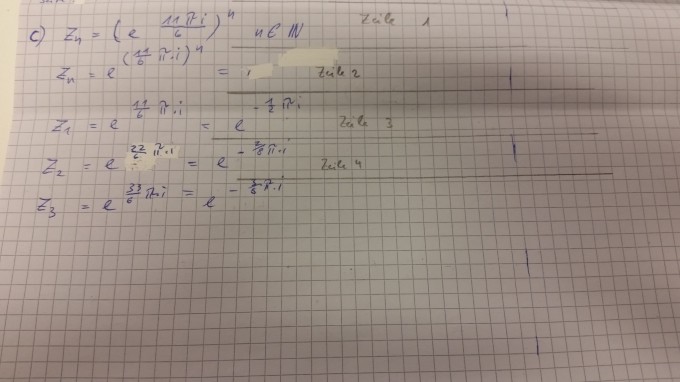 c) Zₙ = ( e^(11πi/6) )ⁿ n ∈ ℕ Zeile 1
Zₙ = e^(11/6 π·i)ⁿ = Zeile 2
Z₁ = e^(11/6 π·i) = e^(-1/2 πi) Zeile 3
Z₂ = e^(22/6 π·i) = e^(-2/6 π·i) Zeile 4
Z₃ = e^(33/6 π·i) = e^(-3/6 π·i)